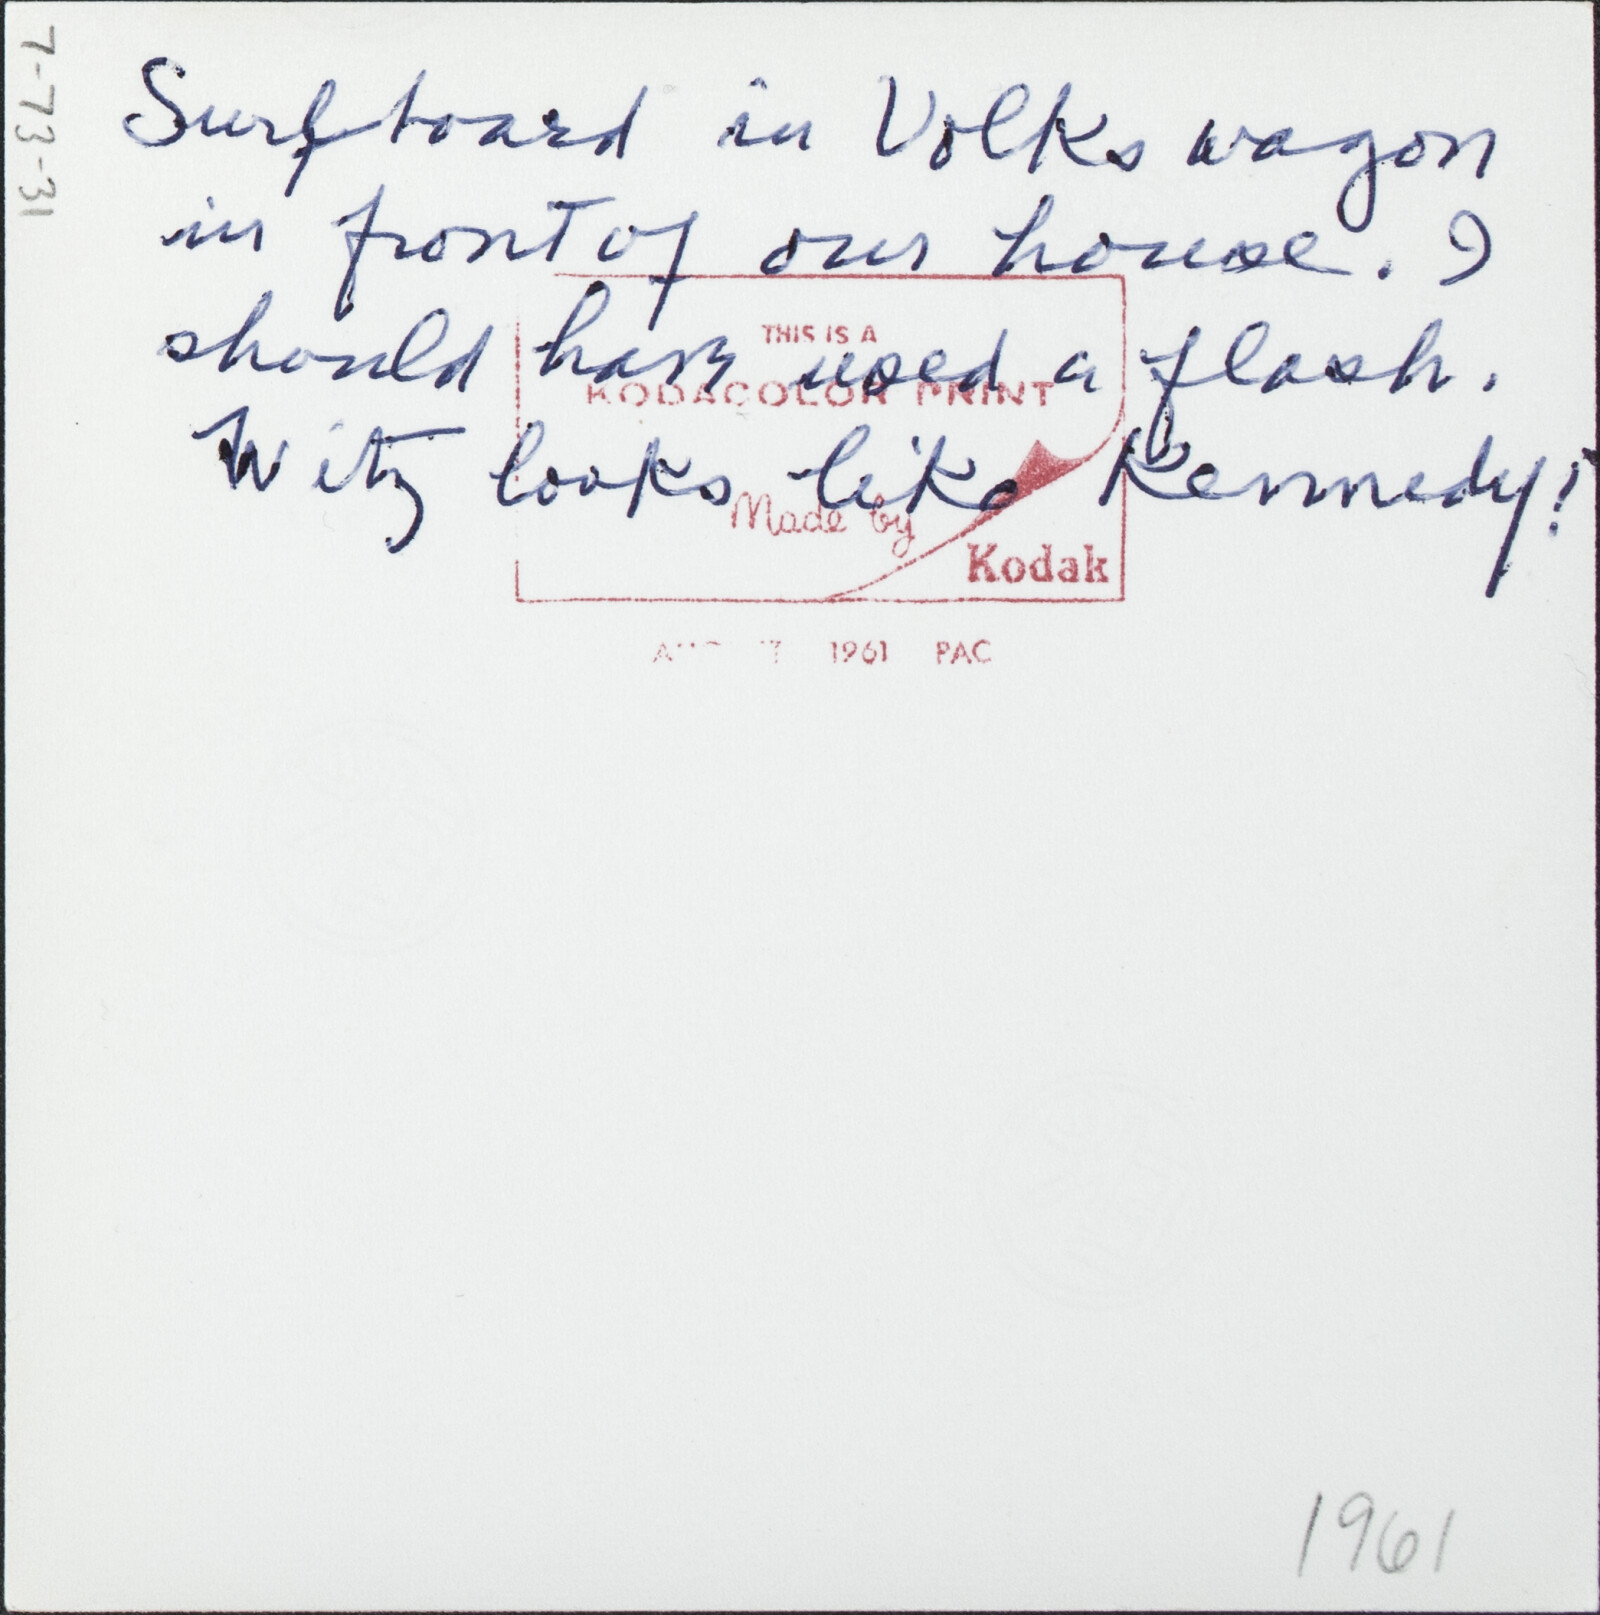 7-73-31
Surfboard in Volkswagon
in front of our house. I
should have used a flash.
Witz looks like Kennedy!
THIS IS A
KODACOLOR PRINT
Made by
Kodak
1961 PAC
1961